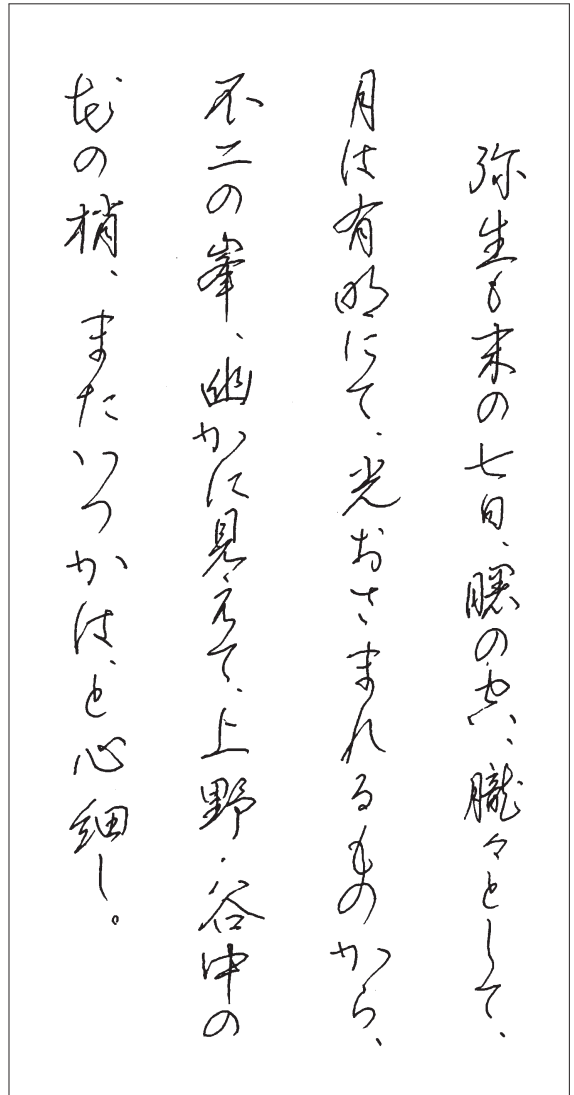 弥生も末の七日、曙の空、朧々として、
月は有明にて、光おさまれるものから、
不二の峯、幽かに見えて、上野・谷中の
花の梢、またいつかは、と心細し。